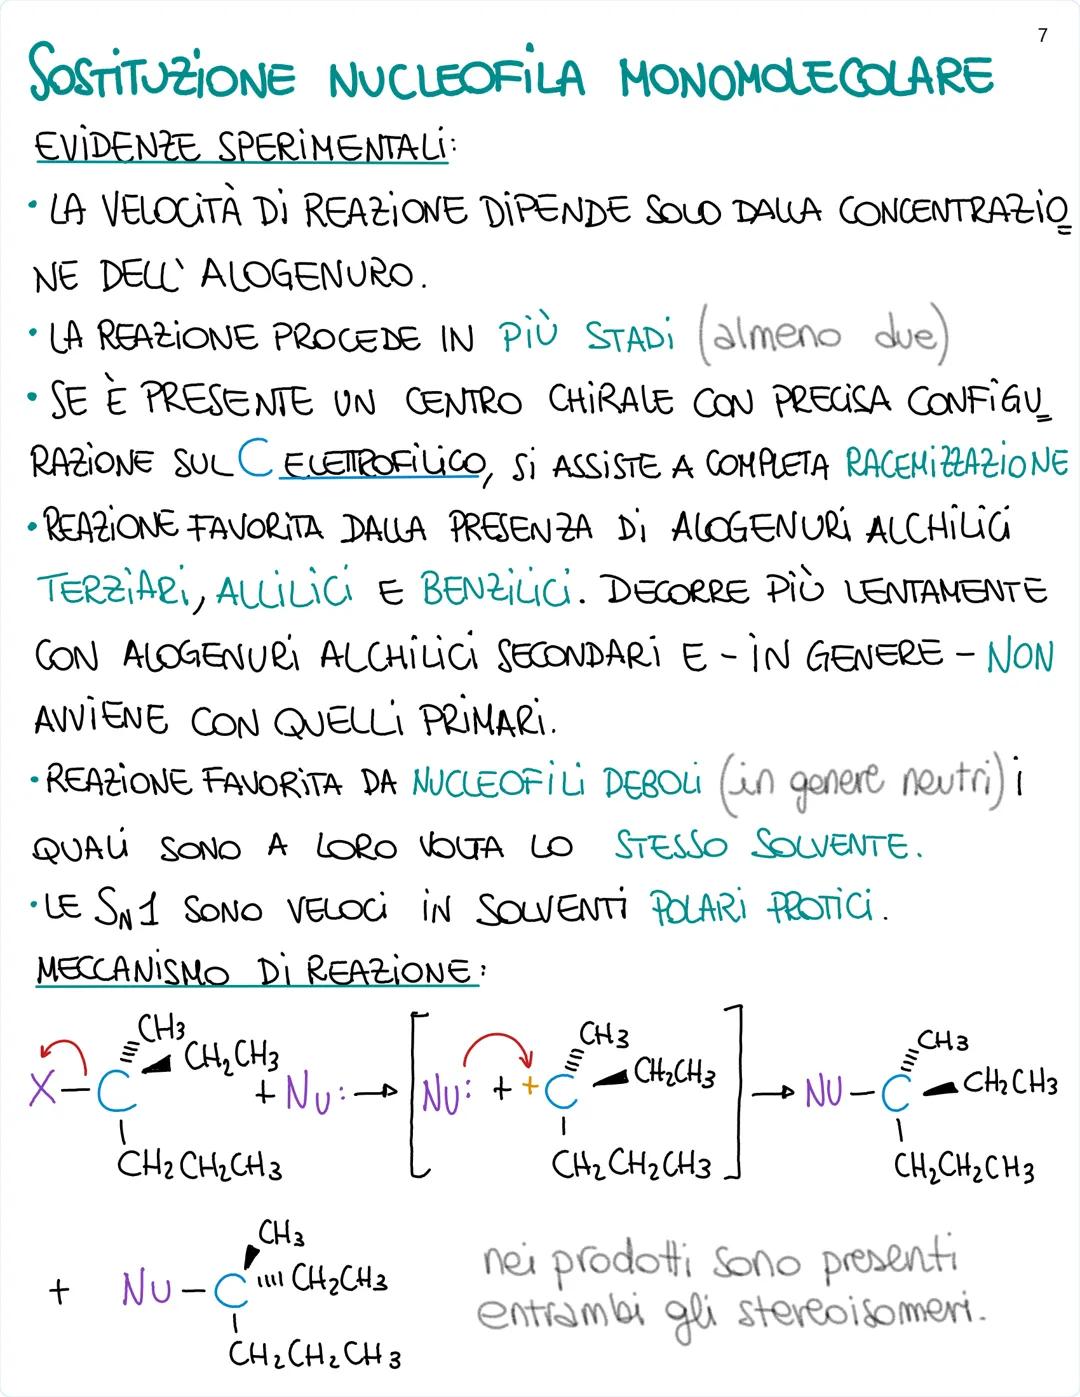 7
SOSTITUZIONE NUCLEOFILA MONOMOLECOLARE
EVIDENZE SPERIMENTALI:
• LA VELOCITÀ DI REAZIONE DIPENDE SOLO DALLA CONCENTRAZIO
NE DELL' ALOGENURO.
• LA REAZIONE PROCEDE IN PIÙ STADI (almeno due)
• SE È PRESENTE UN CENTRO CHIRALE CON PRECISA CONFIGU
RAZIONE SUL C ELETTROFILICO, SI ASSISTE A COMPLETA RACEMIZZAZIONE
• REAZIONE FAVORITA DALLA PRESENZA DI ALOGENURI ALCHILICI
TERZIARI, ALLILICI E BENZILICI. DECORRE PIÙ LENTAMENTE
CON ALOGENURI ALCHILICI SECONDARI E - IN GENERE - NON
AVVIENE CON QUELLI PRIMARI.
• REAZIONE FAVORITA DA NUCLEOFILI DEBOLI (in genere neutri) i
QUALI SONO A LORO VOLTA LO STESSO SOLVENTE.
• LE SN1 SONO VELOCI IN SOLVENTI POLARI PROTICI.
MECCANISMO DI REAZIONE:
CH3 CH3 CH3
CH2CH3 CH2CH3 CH2CH3
X-C + Nu: → [Nu: + +C] → NU-C
CH2CH2CH3 CH2CH2CH3 CH2CH2CH3
CH3
+ NU-C CH2CH3
CH2CH2CH3
nei prodotti sono presenti
entrambi gli stereoisomeri.